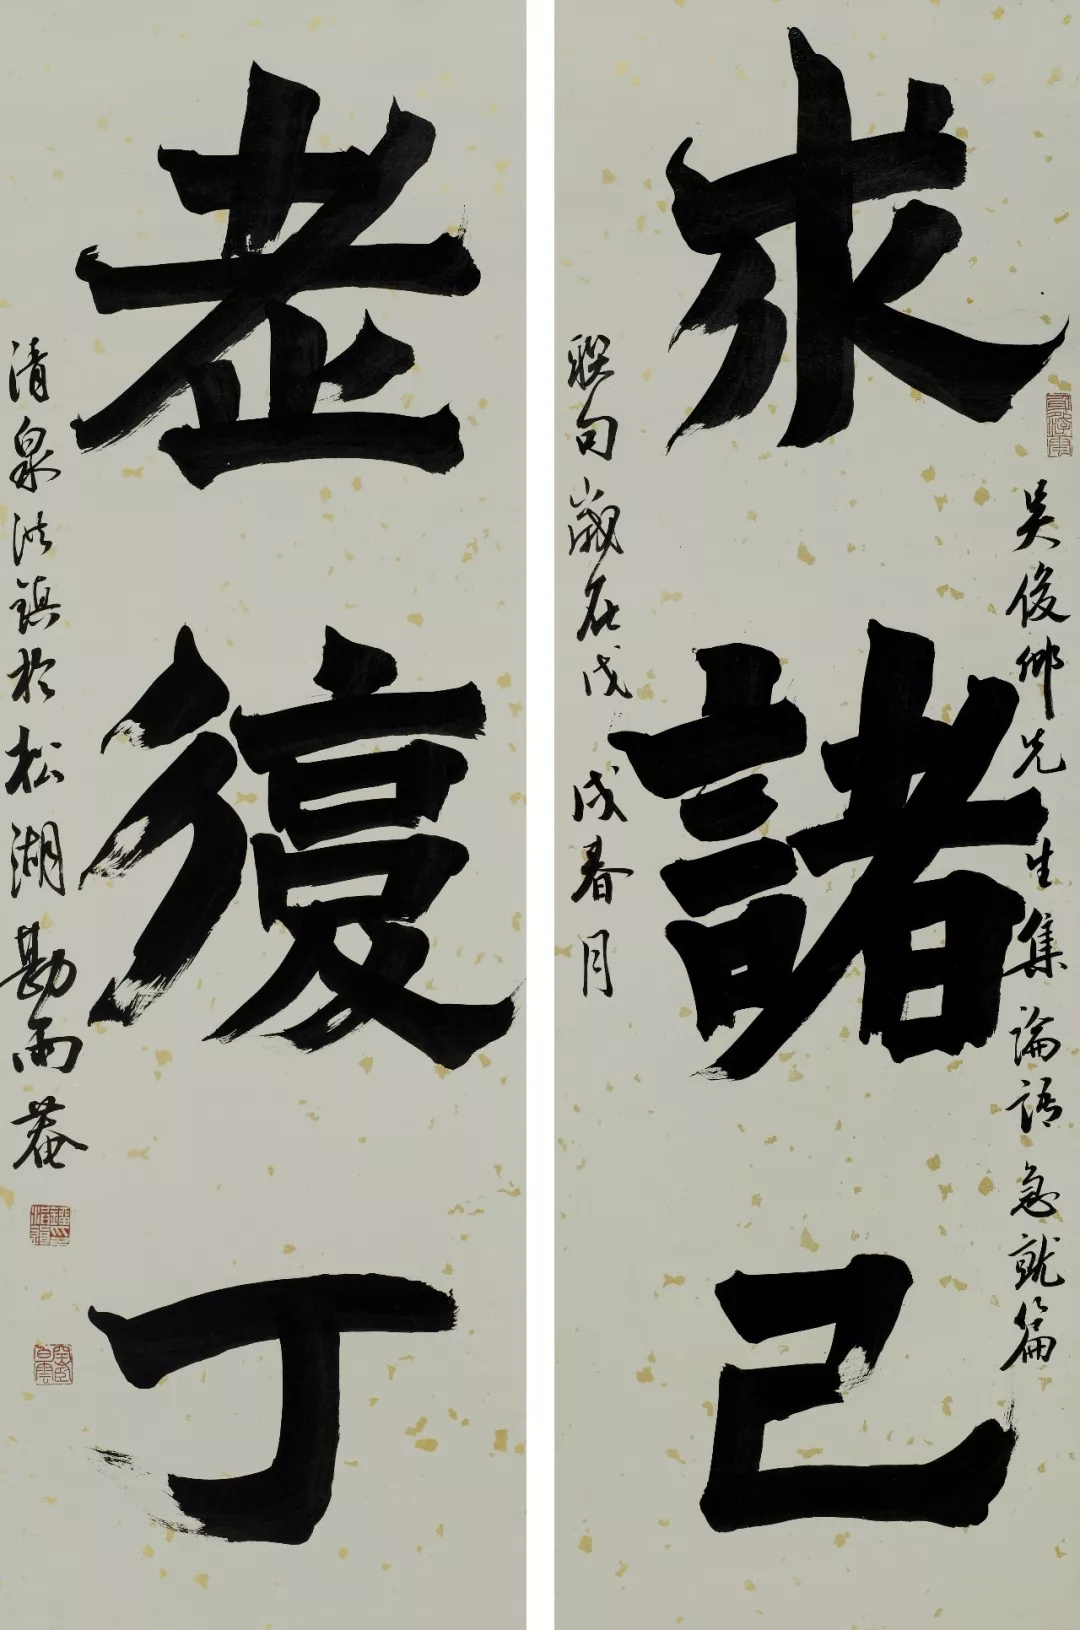 吴俊卿先生集論語急就篇
求諸己
聯句歲在戊戌春月
老復丁
清泉洪鎮於松湖勘雨菴